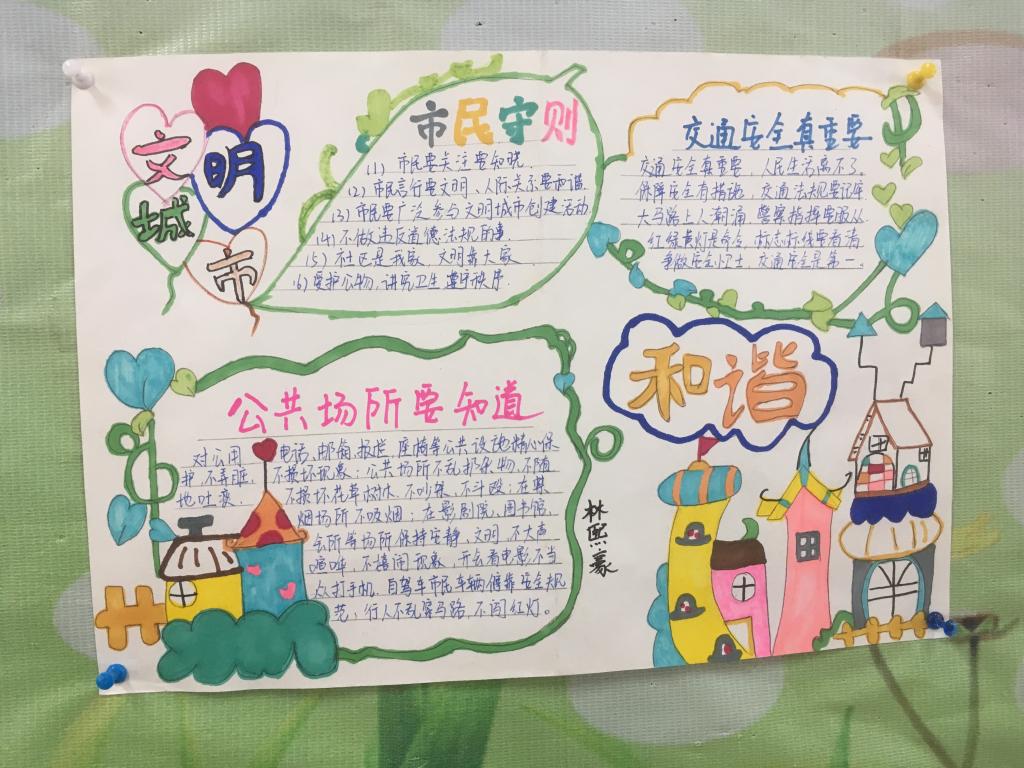 文明
城市
市民守则
(1) 市民要关注要知晓
(2) 市民言行要文明、人际关系要和谐
(3) 市民要广泛参与文明城市创建活动
(4) 不做违反道德法规的事
(5) 社区是我家 文明靠大家
(6) 爱护公物，讲究卫生 遵守秩序.
交通安全真重要
交通安全真重要，人民生活离不了。
保障安全有措施，交通法规要记牢
大马路上人潮涌，警察指挥要服从
红绿黄灯是命令，标志标线要看清
争做安全小卫士，交通安全是第一。
公共场所要知道
对公用电话、邮筒、报栏、座椅等公共设施精心保
护，不弄脏、不损坏现象；公共场所不乱扔杂物、不随
地吐痰、不损坏花草树木、不吵架、不斗殴；在禁
烟场所不吸烟；在影剧院、图书馆、
会所等场所保持安静、文明、不大声
喧哗、不嬉闹现象，开会看电影不当
众打手机，自驾车市民车辆停靠安全规
范；行人不乱穿马路，不闯红灯。
和谐
林熙豪